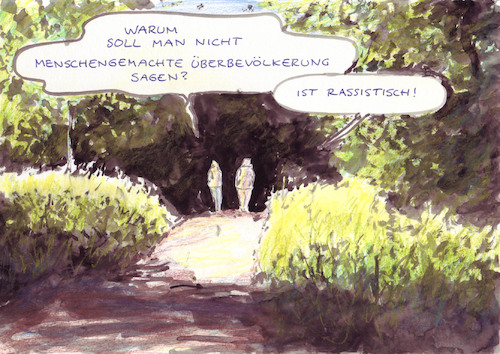 WARUM
SOLL MAN NICHT
MENSCHENGEMACHTE ÜBERBEVÖLKERUNG
SAGEN?
IST RASSISTISCH!